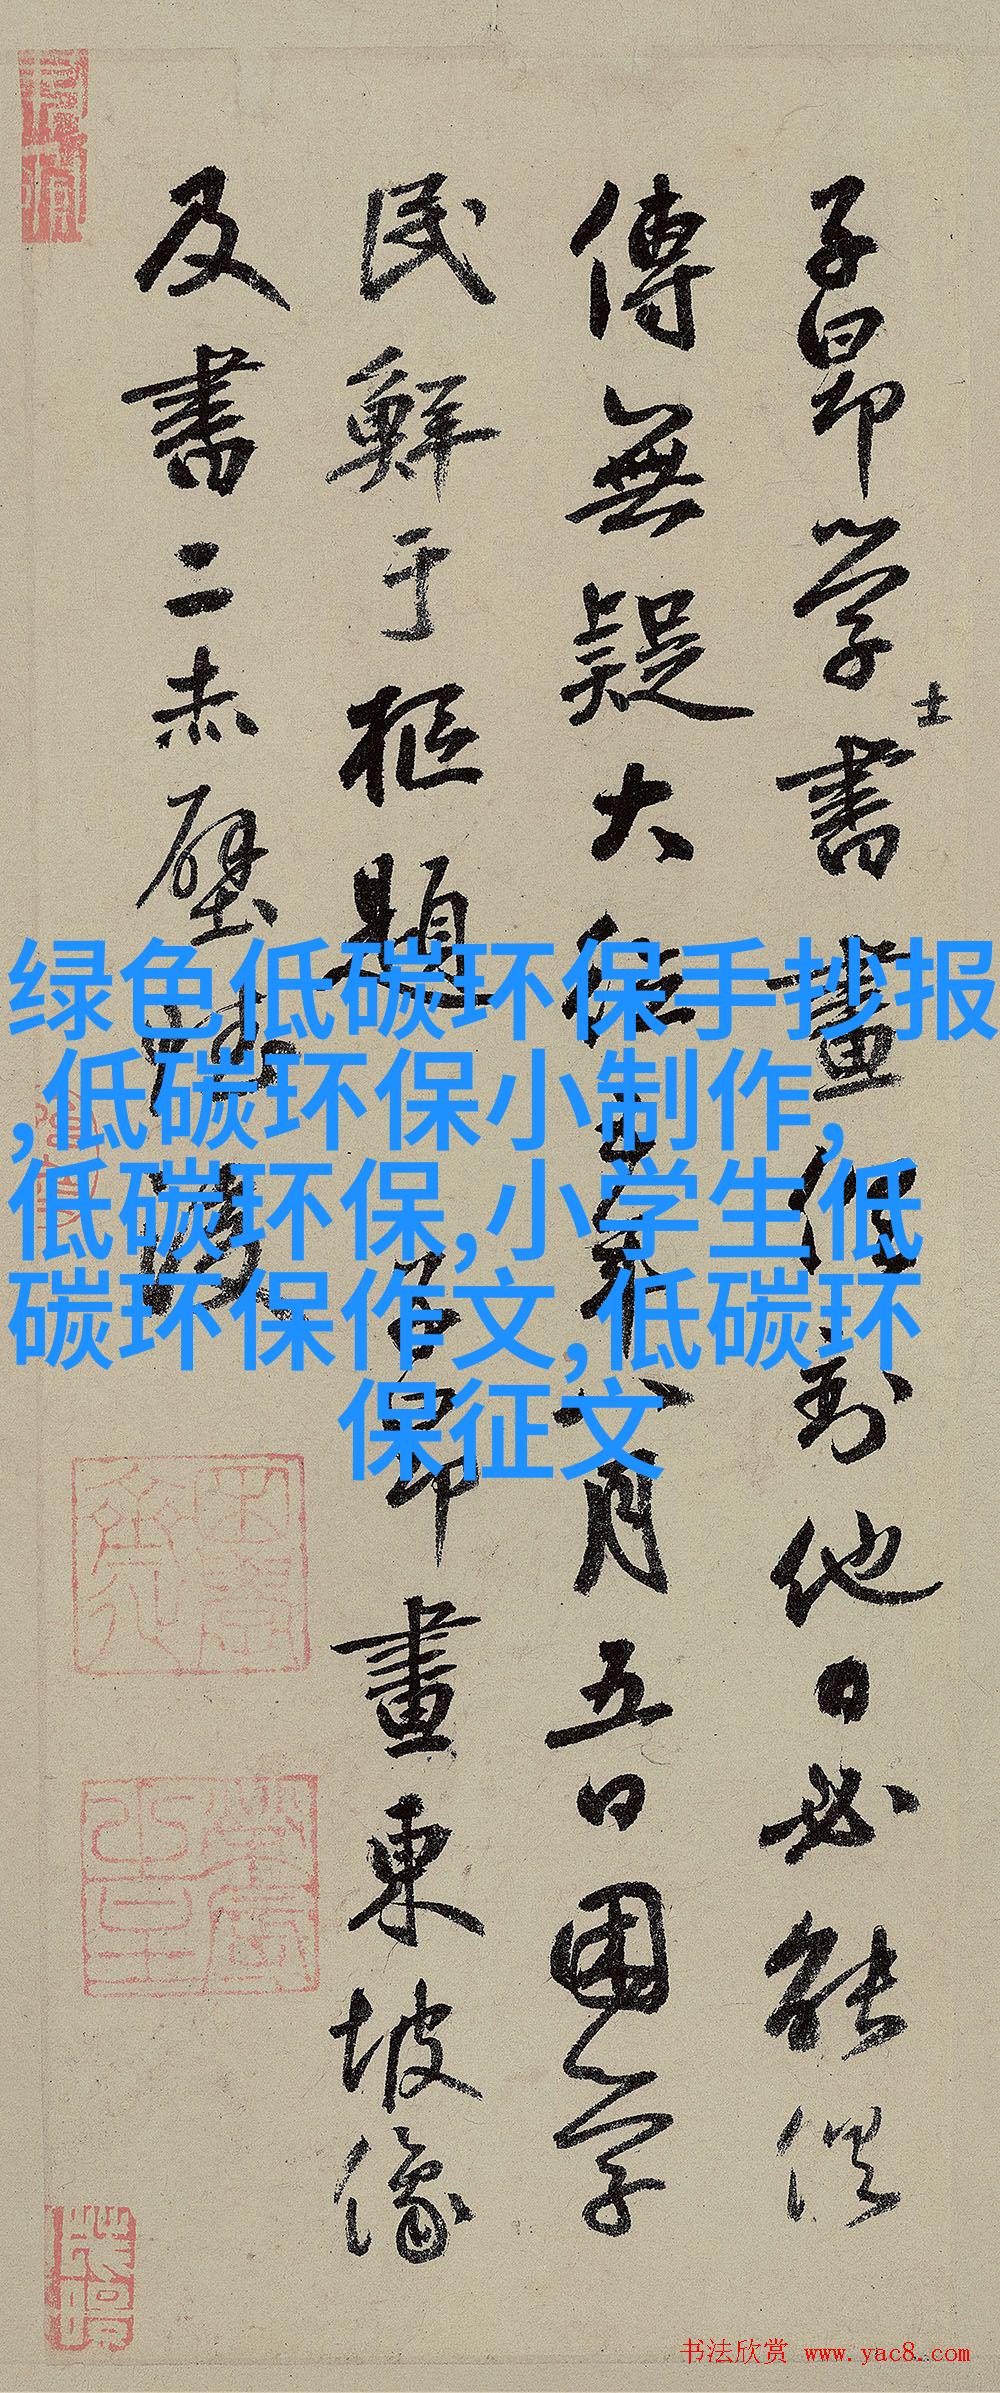 子昂学士書畫但到他日必能俱
傳無疑大德年八月五日困学
民鮮于樞題昂畫東坡像
及書二赤壁
绿色低碳环保手抄报
,低碳环保小制作,
低碳环保,小学生低
碳环保作文,低碳环
保征文
书法欣赏 www.yac8.com